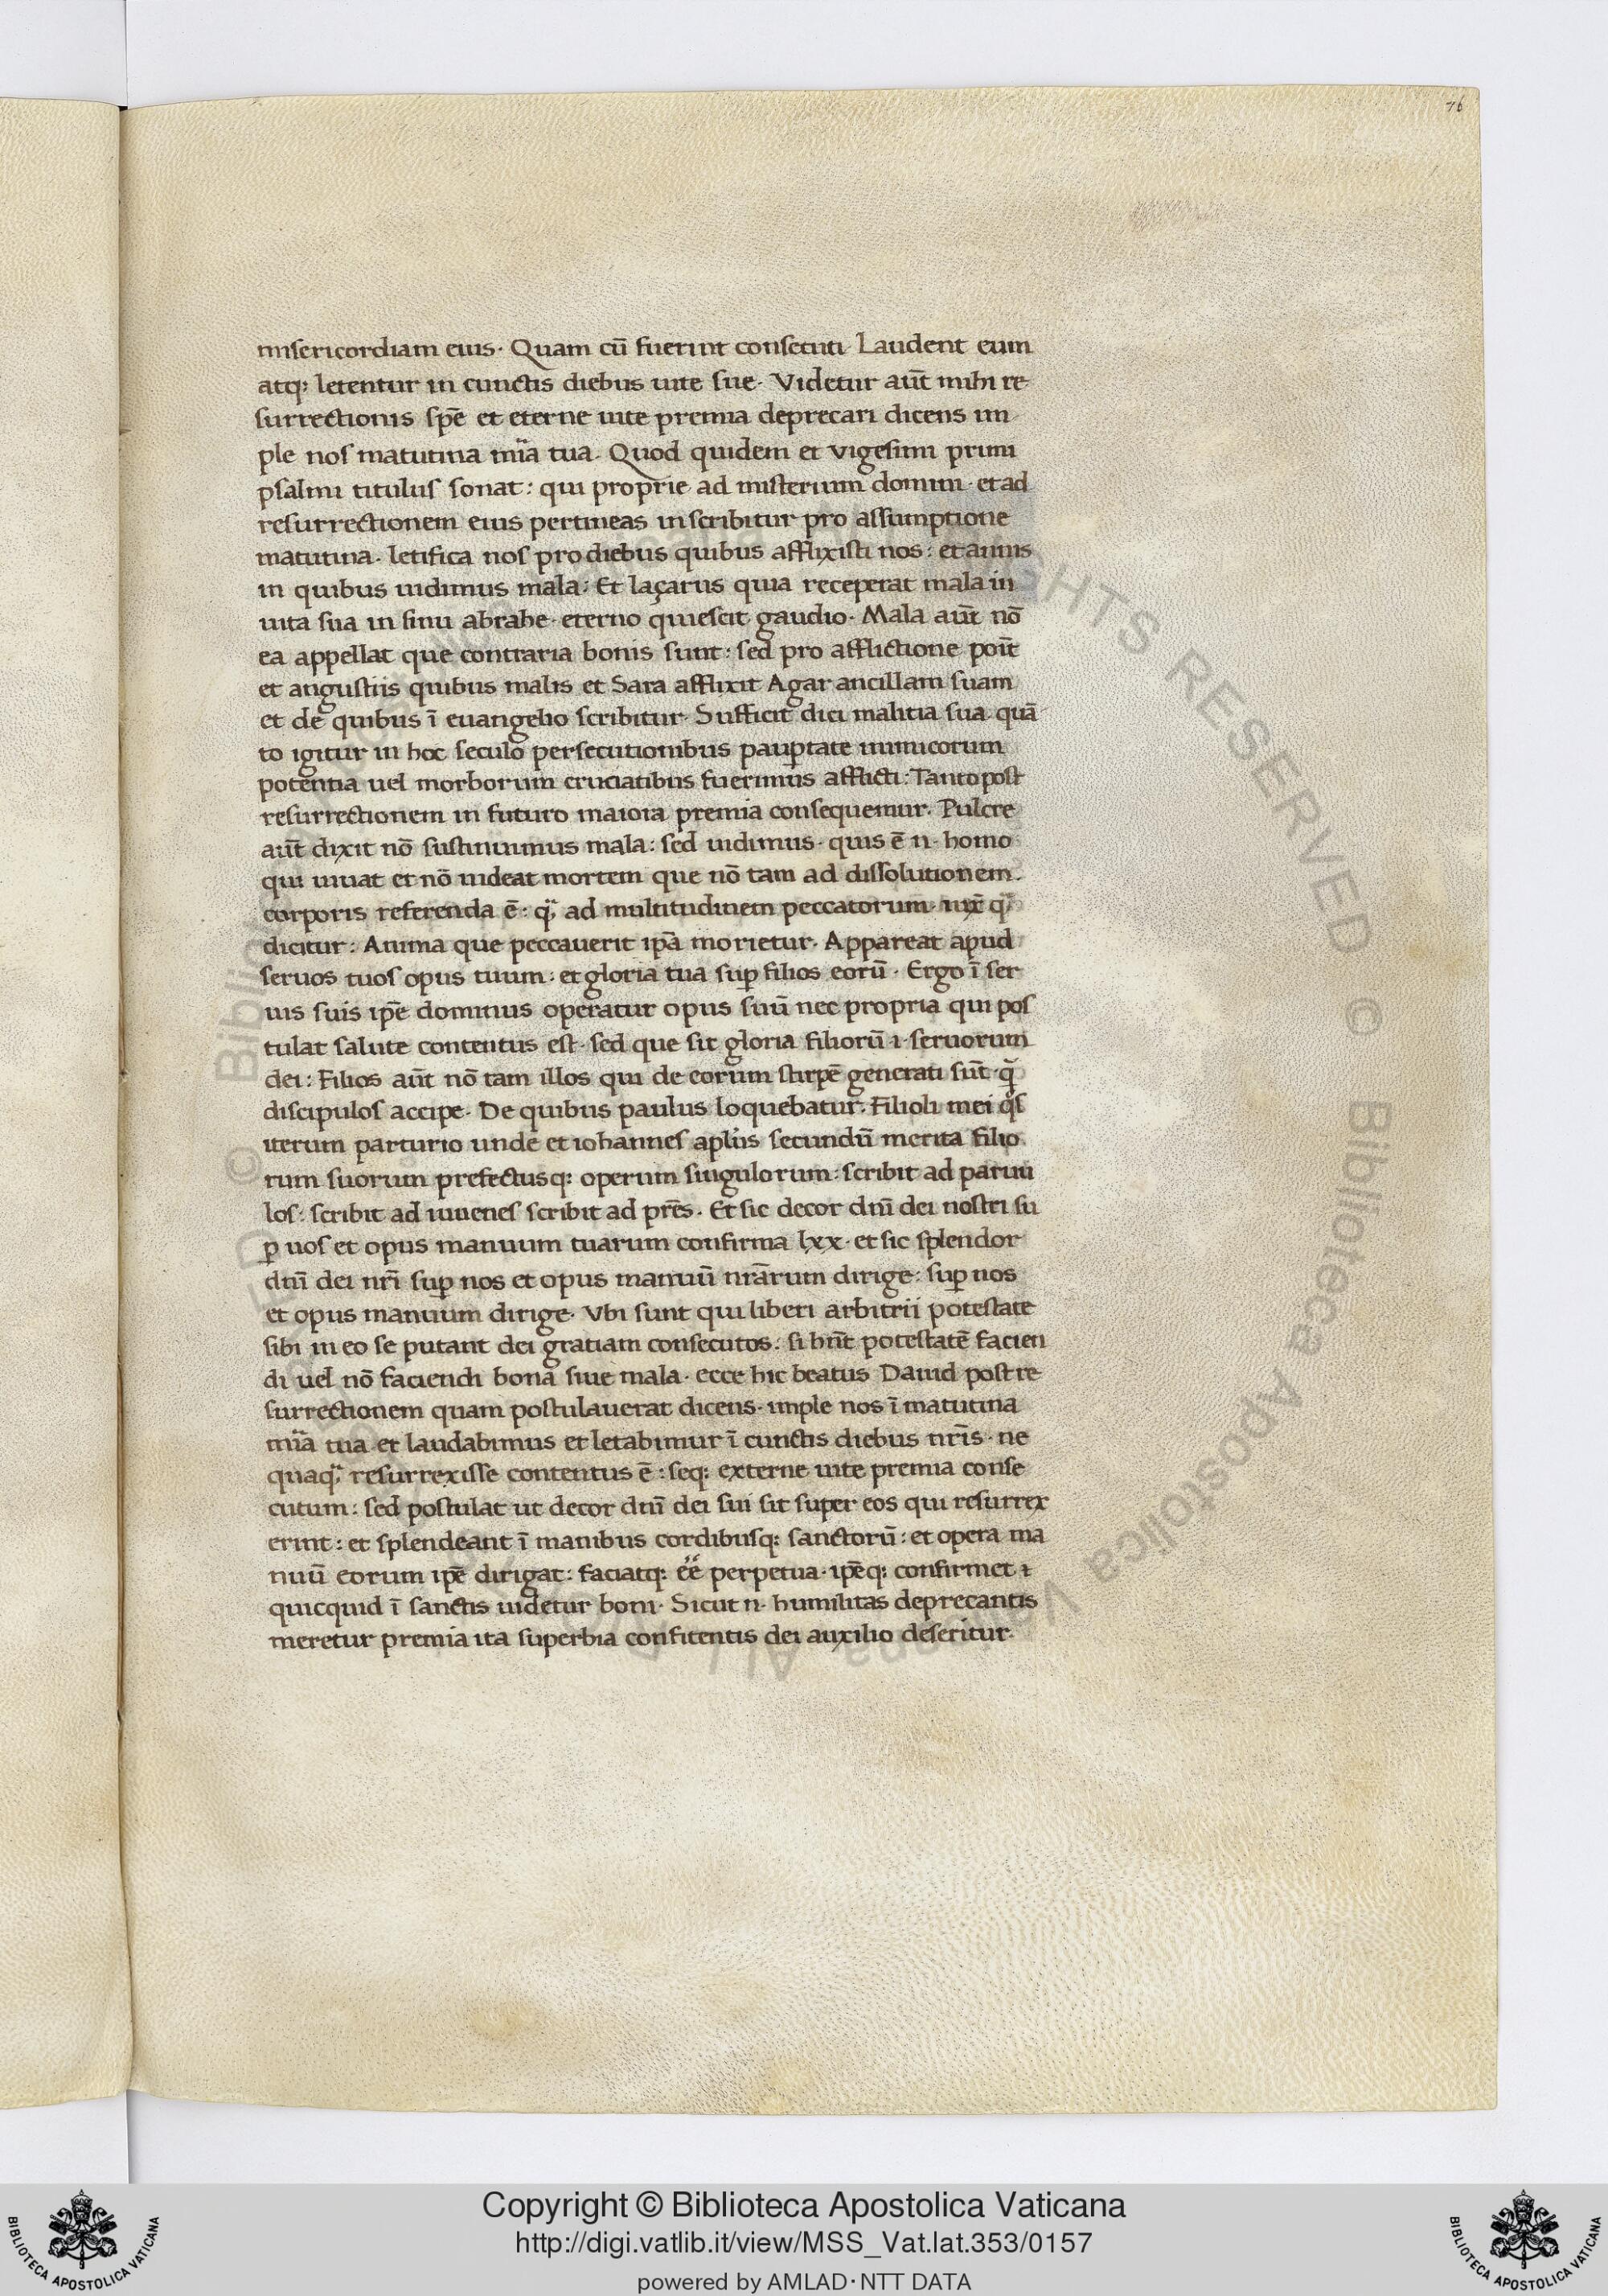 76
misericordiam eius· Quam cū fuerint consecuti· Laudent eum
atq: letentur in cunctis diebus uite sue· Videtur aūt mihi re
surrectionis spē et eterne uite premia deprecari dicens im
ple nos matutina mīa tua· Quod quidem et vigesimi primi
psalmi titulus sonat: qui proprie ad misterium domini· et ad
resurrectionem eius pertineas inscribitur pro assumptione
matutina· letifica nos pro diebus quibus afflixisti nos: et annis
in quibus uidimus mala: Et laçarus quia receperat mala in
uita sua in sinu abrahe· eterno quiescit gaudio· Mala aūt nō
ea appellat que contraria bonis sunt: sed pro afflictione poīt
et angustiis quibus malis et Sara afflixit Agar ancillam suam
et de quibus ī euangelio scribitur· Sufficit dici malitia sua· quā
to igitur in hoc seculo persecutionibus pauꝑtate inimicorum
potentia uel morborum cruciatibus fuerimus afflicti: Tanto post
resurrectionem in futuro maiora premia consequemur· Pulcre
aūt dixit nō sustinuimus mala: sed uidimus· quis ē n· homo
qui uiuat et nō uideat mortem que nō tam ad dissolutionem·
corporis referenda ē: q̄; ad multitudinem peccatorum· iux̄ q̄;
dicitur: Anima que peccauerit ipā morietur· Appareat apud
seruos tuos opus tuum: et gloria tua suꝑ filios eorū· Ergo ī ser
uis suis ipē dominus operatur opus suū nec propria qui pos
tulat salute contentus est· sed que sit gloria filiorū ·i· seruorum
dei: Filios aūt nō tam illos qui de eorum stirpē generati sūt· q̄
discipulos accipe· De quibus paulus loquebatur· Filioli mei q̊s
iterum parturio unde et iohannes apl̄us secundū merita filio
rum suorum prefectusq: operum singulorum: scribit ad paruu
los: scribit ad iuuenes scribit ad pr̄es· Et sic decor dn̄i dei nostri su
ꝑ uos et opus manuum tuarum confirma lxx· et sic splendor
dn̄i dei nr̄i suꝑ nos et opus manuū nr̄arum dirige: suꝑ nos
et opus manuum dirige· Vbi sunt qui liberi arbitrii potestate
sibi in eo se putant dei gratiam consecutos: si hn̄t potestatē facien
di uel nō faciendi bona siue mala· ecce hic beatus Dauid post re
surrectionem quam postulauerat dicens· imple nos ī matutina
mīa tua et laudabimus et letabimur ī cunctis diebus nr̄is· ne
quaq̄; resurrexisse contentus ē: seq: externe uite premia conse
cutum: sed postulat ut decor dn̄i dei sui sit super eos qui resurrex
erint: et splendeant ī manibus cordibusq: sanctorū: et opera ma
nuū eorum ipē dirigat: faciatq: ēē perpetua· ipēq: confirmet ⁊
quicquid ī sanctis uidetur boni· Sicut n· humilitas deprecantis
meretur premia ita superbia confitentis dei auxilio deseritur·
© Biblioteca Apostolica Vaticana ALL RIGHTS RESERVED
Copyright © Biblioteca Apostolica Vaticana
http://digi.vatlib.it/view/MSS_Vat.lat.353/0157
powered by AMLAD·NTT DATA
BIBLIOTECA APOSTOLICA VATICANA
BIBLIOTECA APOSTOLICA VATICANA